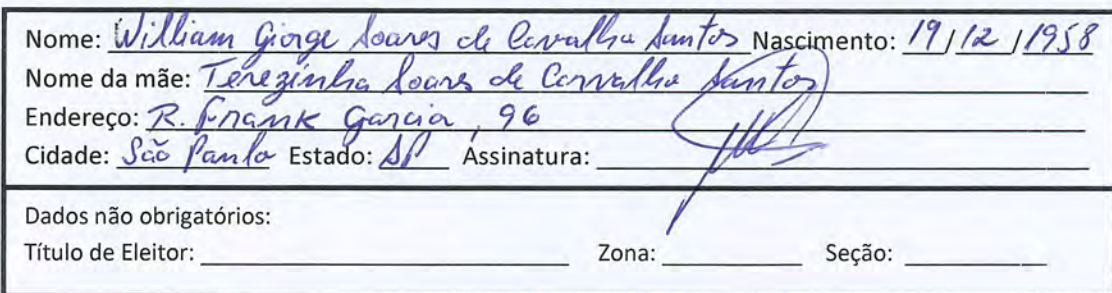 Nome: William Giorge Soares de Carvalho Santos Nascimento: 19/12/1958
Nome da mãe: Terezinha Soares de Carvalho Santos
Endereço: R. Frank Garcia, 96
Cidade: São Paulo Estado: SP Assinatura:
Dados não obrigatórios:
Título de Eleitor: Zona: Seção: